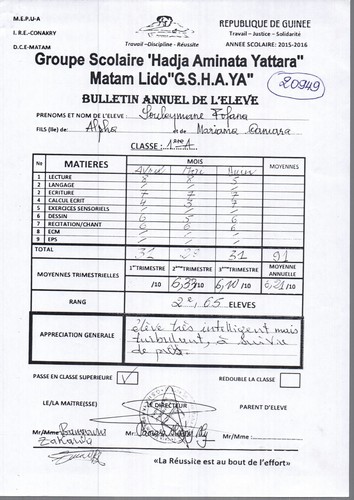 M.E.P.U-A
I. RE.-CONAKRY
D.C.E-MATAM
Travail –Discipline - Réussite
REPUBLIQUE DE GUINEE
Travail – Justice – Solidarité
ANNEE SCOLAIRE: 2015-2016
Groupe Scolaire 'Hadja Aminata Yattara"
Matam Lido"G.S.H.A.YA"
BULLETIN ANNUEL DE L'ELEVE
20949
PRENOMS ET NOM DE L'ELEVE : Souleymane Fofana
FILS (lle) de: Alpha et de Mariama Camara
CLASSE : 1ère A
No MATIERES MOIS MOYENNES
Avril Mai Juin
1 LECTURE 8 8 5
2 LANGAGE / / /
3 ECRITURE 7 7 7
4 CALCUL ECRIT 4 3 7
5 EXERCICES SENSORIELS / / /
6 DESSIN 6 5 6
7 RECITATION/CHANT 6 6 6
8 ECM / / /
9 EPS / / /
TOTAL 31 29 31 91
MOYENNES TRIMESTRIELLES 1er TRIMESTRE 2ème TRIMESTRE 3ème TRIMESTRE MOYENNE ANNUELLE
/10 6,33/10 6,10/10 6,21/10
RANG 2e, 65 ELEVES
APPRECIATION GENERALE élève très intelligent mais
turbulent, à suivre
de près.
PASSE EN CLASSE SUPERIEURE ✓ REDOUBLE LA CLASSE
LE/LA MAITRE(SSE) LE DIRECTEUR PARENT D'ELEVE
Mr/Mme Mr/Mme Mr/Mme :
Zakaria
«La Réussite est au bout de l'effort»